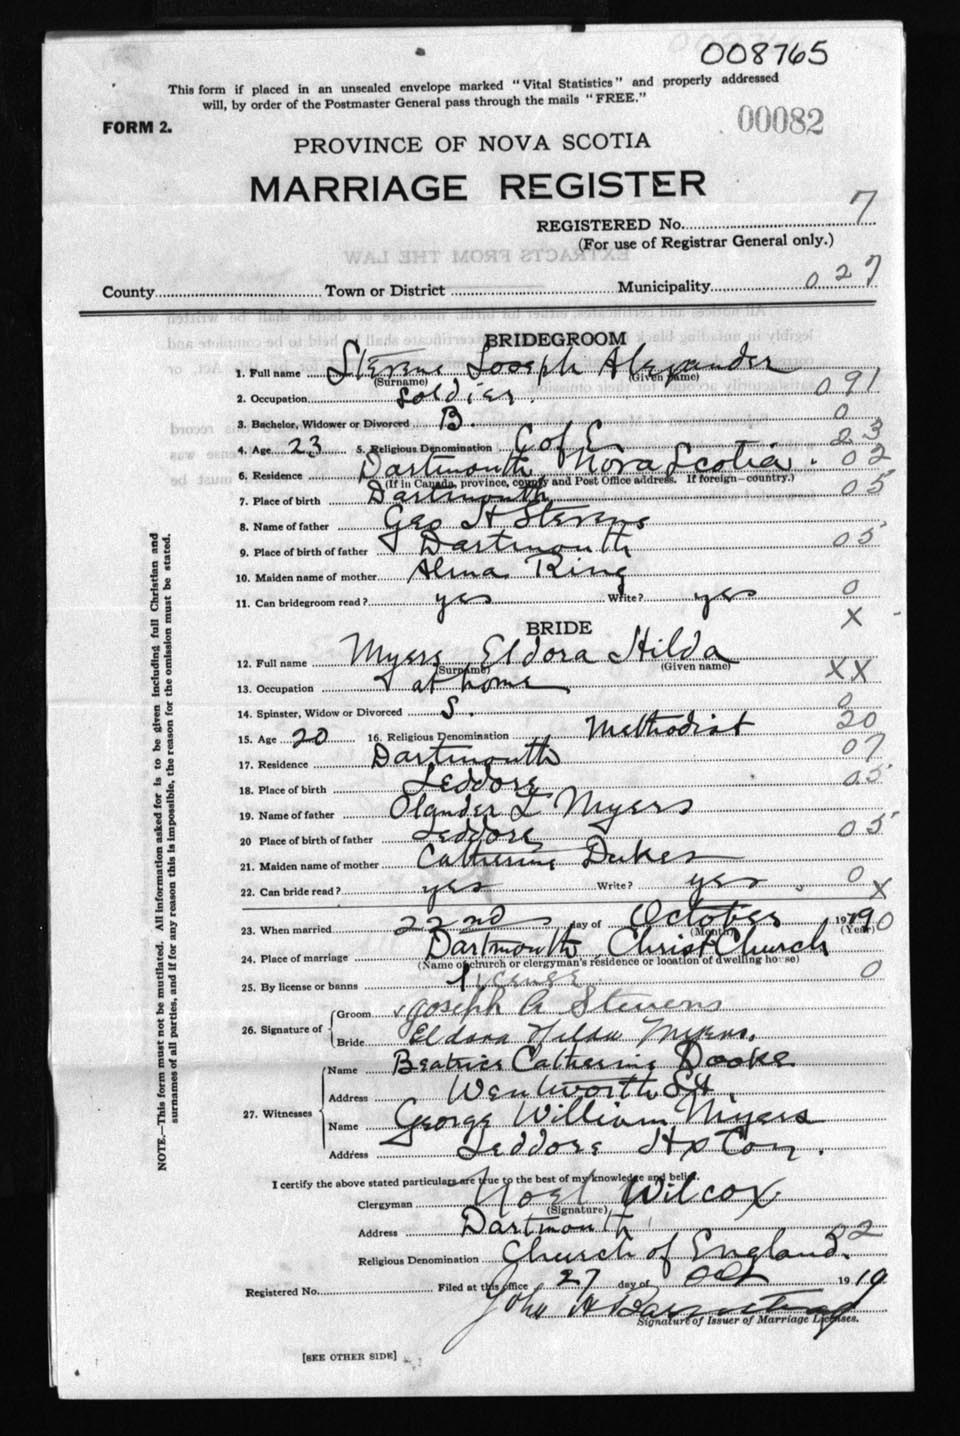 008765
This form if placed in an unsealed envelope marked "Vital Statistics" and properly addressed
will, by order of the Postmaster General pass through the mails "FREE."
FORM 2.
00082
PROVINCE OF NOVA SCOTIA
MARRIAGE REGISTER
REGISTERED No. 7
(For use of Registrar General only.)
County Town or District Municipality 027
BRIDEGROOM
1. Full name Stevens Joseph Alexander
(Surname) (Given name)
2. Occupation Soldier. 091
3. Bachelor, Widower or Divorced B. 0
4. Age 23 5. Religious Denomination C of E 23
6. Residence Dartmouth Nova Scotia. 02
(If in Canada, province, county and Post Office address. If foreign—country.)
7. Place of birth Dartmouth 05
8. Name of father Geo H Stevens
9. Place of birth of father Dartmouth 05
10. Maiden name of mother Alma King
11. Can bridegroom read? yes Write? yes 0
X
BRIDE
12. Full name Myers Eldora Hilda
(Surname) (Given name)
13. Occupation at home XX
14. Spinster, Widow or Divorced S. 0
15. Age 20 16. Religious Denomination Methodist 20
17. Residence Dartmouth 07
18. Place of birth Jeddore 05
19. Name of father Olander L Myers
20 Place of birth of father Jeddore 05
21. Maiden name of mother Catherine Dukes
22. Can bride read? yes Write? yes. 0
X
23. When married 22nd day of October 19
(Month) (Year)
24. Place of marriage Dartmouth Christ Church
(Name of church or clergyman's residence or location of dwelling house)
25. By license or banns license 0
26. Signature of Groom Joseph A Stevens
Bride Eldora Hilda Myers.
27. Witnesses Name Beatrice Catherine Dooke
Address Wentworth St.
Name George William Myers
Address Jeddore Hx Co
I certify the above stated particulars are true to the best of my knowledge and belief.
Clergyman Noel Wilcox
(Signature)
Address Dartmouth
Religious Denomination Church of England. 22
Registered No. Filed at this office 27 day of Oct 1919
John H
Signature of Issuer of Marriage Licenses.
[SEE OTHER SIDE]
NOTE.—This form must not be mutilated. All information asked for is to be given including full Christian and
surnames of all parties, and if for any reason this is impossible, the reason for the omission must be stated.